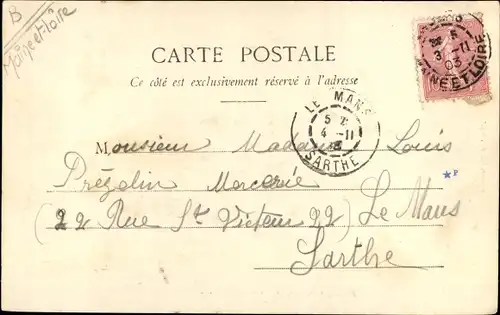 B
Maine et-loire
CARTE POSTALE
Ce côté est exclusivement réservé à l'adresse
3 -11
03
MAINE ET LOIRE
LE MANS
5 2
4 -11
SARTHE
Monsieur Madame Louis
Prégelin Mercerie
(22 Rue St Victeur 22) Le Mans
Sarthe